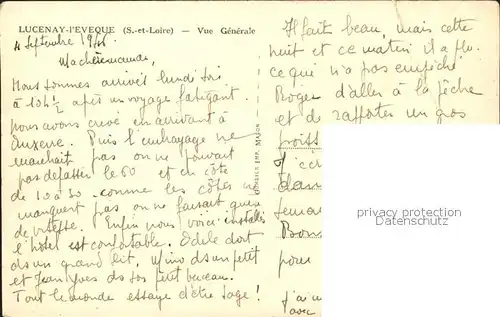 LUCENAY-l'EVEQUE (S.-et-Loire) — Vue Générale
4 Septembre 19
Ma chère maman,
Nous sommes arrivés lundi soir
à 10h½ après un voyage fatigant.
Nous avons crevé en arrivant à
Auxerre. Puis l'embrayage ne
marchait pas on ne pouvait
pas dépasser le 60 et en côte
de 10 à 30 comme les côtes ne
manquent pas on ne faisait guère
de vitesse. Enfin nous voici installés
l'hôtel est confortable. Odile dort
ds un grand lit, Mino ds un petit
et Jean Yves ds son petit berceau.
Tout le monde essaye d'être sage !
COMBIER IMP. MACON
Il fait beau, mais cette
nuit et ce matin il a plu
ce qui n'a pas empêché
Roger d'aller à la pêche
et de rapporter un gros
poiss
J'éc
dans
semai
Bon
pour
J'ai
avec
privacy protection
www.delcampe.net